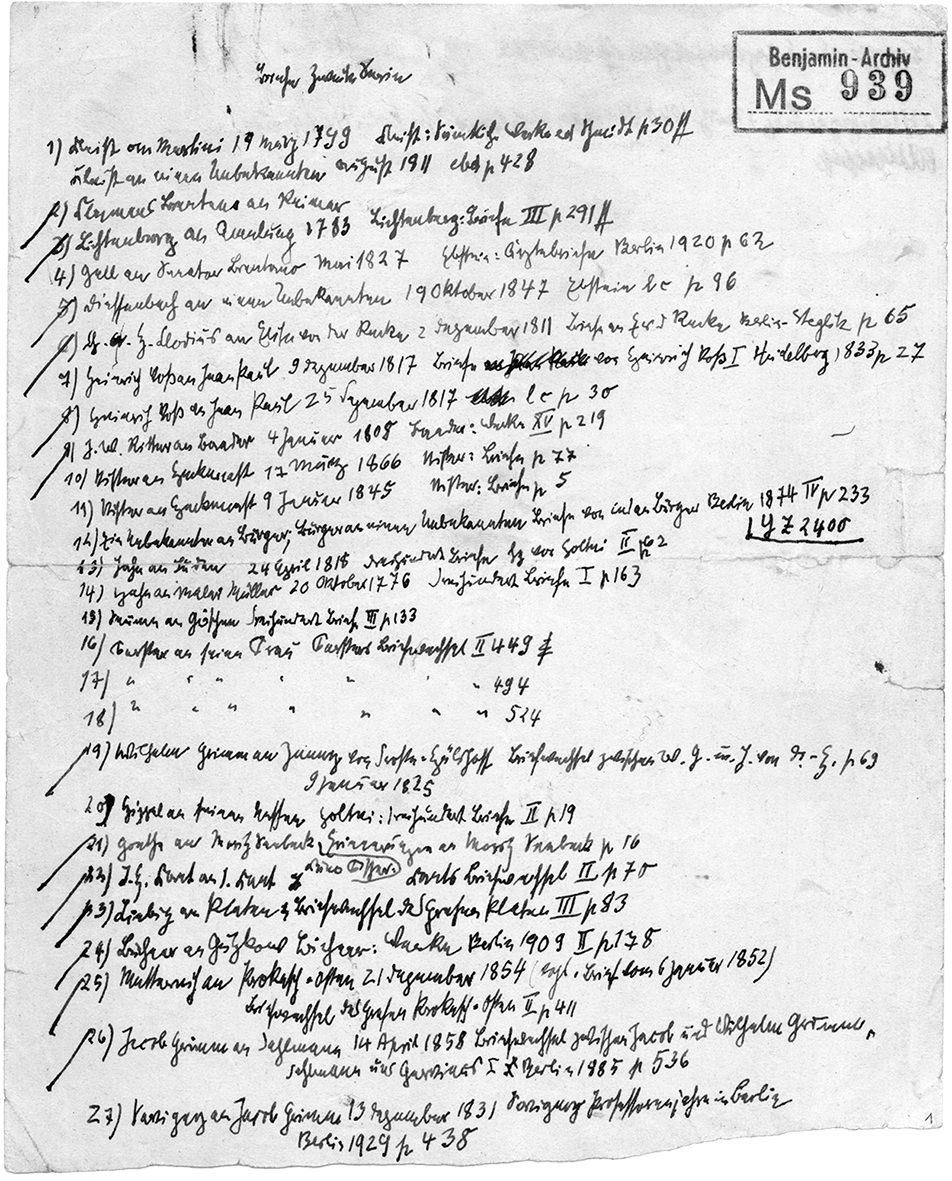 Benjamin-Archiv
Ms 939
Briefe Zweite Serie
1) Kleist an Martini 19 März 1799 Kleist: Sämtliche Werke ed Schmidt p 30ff
Kleist an einen Unbekannten August 1811 ebd p 428
2) Clemens Brentano an Reimer
3) Lichtenberg an Amelung 1783 Lichtenberg: Briefe III p 291ff
4) Gall an Senator Brentano Mai 1827 Ebstein: Ärztebriefe Berlin 1920 p 62
5) Dieffenbach an einen Unbekannten 19 Oktober 1847 Ebstein l c p 96
6) Ch. A. H. Clodius an Elisa von der Recke 2 Dezember 1811 Briefe an E v d Recke Berlin-Steglitz p 65
7) Heinrich Voß an Jean Paul 9 Dezember 1817 Briefe von Heinrich Voß I Heidelberg 1833 p 27
8) Heinrich Voß an Jean Paul 25 Dezember 1817 l c p 30
9) J. W. Ritter an Baader 4 Januar 1808 Baader: Werke XV p 219
10) Vilmar an Henkenast 17 März 1866 Stifter: Briefe p 77
11) Stifter an Heckenast 9 Januar 1845 Stifter: Briefe p 5
12) Ein Unbekannter an Bürger; Bürger an einen Unbekannten Briefe von und an Bürger Berlin 1874 IV p 233
YZ 2400
13) Jahn an Luden 24 April 1815 Dreihundert Briefe hg von Holtei II p 62
14) Hahn an Maler Müller 20 Oktober 1776 Dreihundert Briefe I p 163
15) Seume an Göschen Dreihundert Briefe III p 133
16) Forster an seine Frau Forsters Briefwechsel II 449
17) " " " " " " " 494
18) " " " " " " " 524
19) Wilhelm Grimm an Jenny von Droste-Hülshoff Briefwechsel zwischen W. G. u. J. von D.-H. p 69
9 Januar 1825
20) Hippel an seinen Neffen Holtei: Dreihundert Briefe II p 19
21) Goethe an Moritz Seebeck Erinnerungen an Moritz Seebeck p 16
Kuno Fischer:
22) J. H. Kant an I. Kant Kants Briefwechsel II p 70
23) Liebig an Platen Briefwechsel des Grafen Platen III p 83
24) Büchner an Gutzkow Büchner: Werke Berlin 1909 II p 178
25) Metternich an Prokesch-Osten 21 Dezember 1854 (vgl. Brief vom 6 Januar 1852)
Briefwechsel des Grafen Prokesch-Osten II p 411
26) Jacob Grimm an Dahlmann 14 April 1858 Briefwechsel zwischen Jacob und Wilhelm Grimm,
Dahlmann und Gervinus I Berlin 1885 p 536
27) Savigny an Jacob Grimm 13 Dezember 1831 Savignys Professorenjahre in Berlin
Berlin 1929 p 438
1